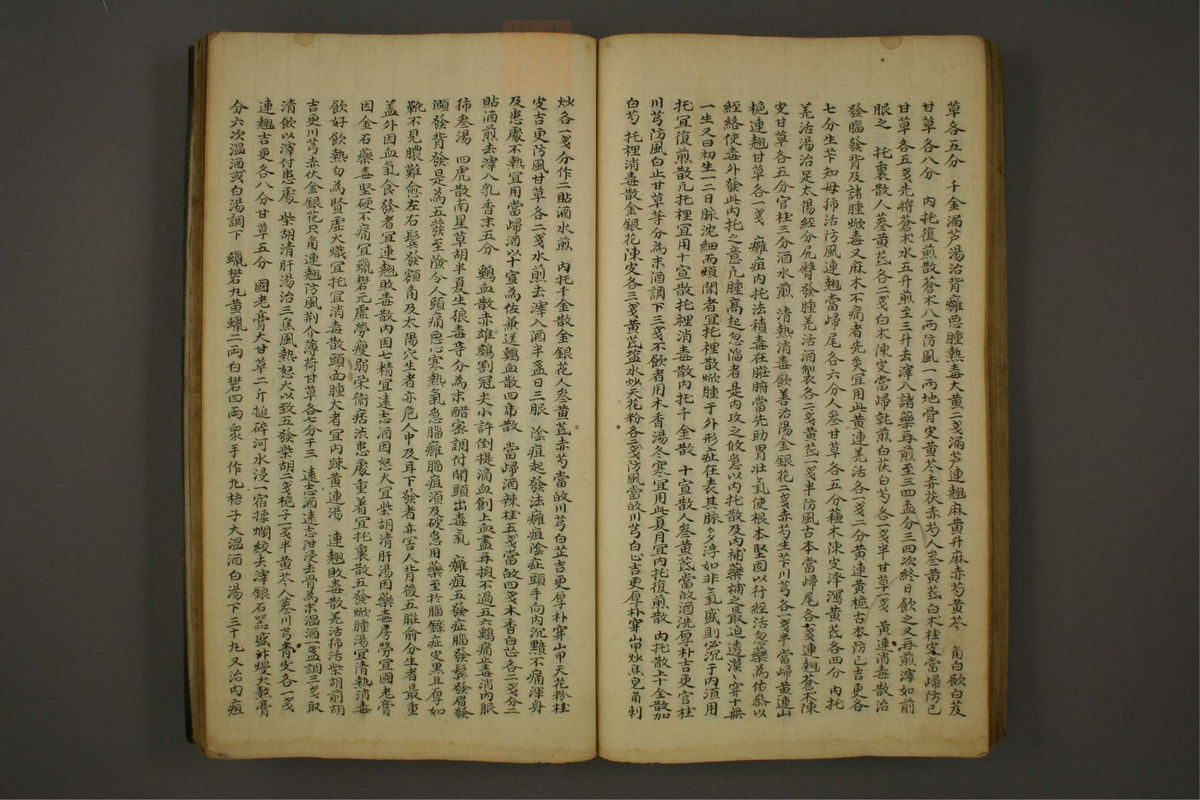 草各五分 千金漏芦湯治背癰悪腫熱毒大黄二戔漏芦連翹麻黄升麻赤芍黄芩 角白斂白芨
甘草各八分 內托復煎散蒼朮八兩防風一兩地骨皮黄芩赤茯赤芍人參黄芪白朮桂皮當歸防已
甘草各五戔先將蒼朮水五升煎至三升去滓入諸藥再煎至三四盃分三四次終日飲之又再煎滓如前
服之 托裏散人參黄芪各二戔白朮陳皮當歸乾煎白茯白芍各一戔半甘草一戔 黄連消毒散治
發腦發背及諸腫焮毒又麻木不痛者先灸宜用此黄連羌活各一戔二分黄連黄栀古本防已吉更各
七分生芐知母抪活防風連翹當歸尾各六分人參甘草各五分蘓木陳皮泽瀉黄芪各四分 內托
羌活湯治足太陽経分尻臀發腫羌活酒製各二戔黄芪一戔半防風古本當歸尾各戔連翹蒼朮陳
皮甘草各五分官桂三分酒水煎 清熱消毒飲善治湯金銀花二戔赤芍生芐川芎各一戔半當歸黄連山
栀連翹甘草各一戔 癰疽內托法積毒在臟腑當先助胃壯氣使根本堅固以行経活忽藥為佑叅以
経絡使毒外發此內托之意凡腫高起忽陥者是內攻之候急以內托散及內補藥補之最迫透漠穿十無
一生又曰初生一二日脉沈細而煩悶者宜托裡散焮腫于外形症在表其脉多浮如非氣盛則必沉于內湏用
托宜復煎散凡托裡宜用十宣散托裡消毒散內托千金散 十宣散人參黄芪當故酒洗厚朴吉更官桂
川芎防風白止甘草等分為末酒調下三戔不飲者用木香湯冬寒宜用此夏月宜內托復煎散 內托散上千金散加
白芍 托裡消毒散金銀花陳皮各三戔黄芪塩水炒天花粉各二戔防風當故川芎白止吉更厚朴穿山甲炒焦皂角刺
炒各一戔分作二貼酒水煎 內托千金散金銀花人參黄芪赤芍當故川芎白芷吉更厚朴穿山甲天花粉桂
皮吉更防風甘草各二戔水煎去滓入酒半盞日三眼 陰疽起發法癰疽陰症頭手向內沉黙不痛渾身
及患處不熱宜用當歸酒以十宣為佐兼送鷄血散四虎散 當歸酒辣桂五戔當故四戔木香白芷各二戔分二
貼酒煎去滓入乳香末五分 鷄血散赤雄鷄割冠尖小許倒提滴血創上血盡再換不過五六鷄痛止毒消內服
抪叅湯 四虎散南星草胡半夏生狼毒等分為末醋蜜調付開頭出毒氣 癰疽五發症腦發鬂發眉發
頤發背發是為五發至險令人頭痛悪心寒熱氣急腦癰腦疽湏及硬急用藥至於腦鑠症皮黑且厚如
靴不見膿難愈左右鬂發額角及太陽穴生者亦危人中及耳下發者亦害人背後五臟俞分生者最重
盖外因血氣食發者宜連翹敗毒散內因七精宜遠志酒因怒火宜柴胡清肝湯因藥毒房勞宜國老膏
因金石藥毒堅硬不痛宜蠟礬元虛勞瘦弱荣衛痞渋患處重着宜托裏散五發焮腫湯宜清熱消毒
飲好飲熱勿為賢虛火熾宜托宜消毒散頭面腫大者宜內踈黄連湯 連翹敗毒散羌活抪活柴胡前胡
吉更川芎赤伏金銀花只角連翹防風荆介薄荷甘草各七分干三 遠志酒遠志泔浸去骨為末温酒一盞調三戔取
清飲以滓付患處 柴胡清肝湯治三焦風熱怒火以致五發柴胡二戔栀子一戔半黄芩人參川芎青皮各一戔
連翹吉更各八分甘草五分 國老膏大甘草二斤搥碎河水浸一宿揉爛絞去滓銀石器盛以熳火熬膏
分六次温酒或白湯調下 蠟礬丸黄蠟二兩白礬四兩衆手作丸梧子大温酒白湯下三十九又治內疽